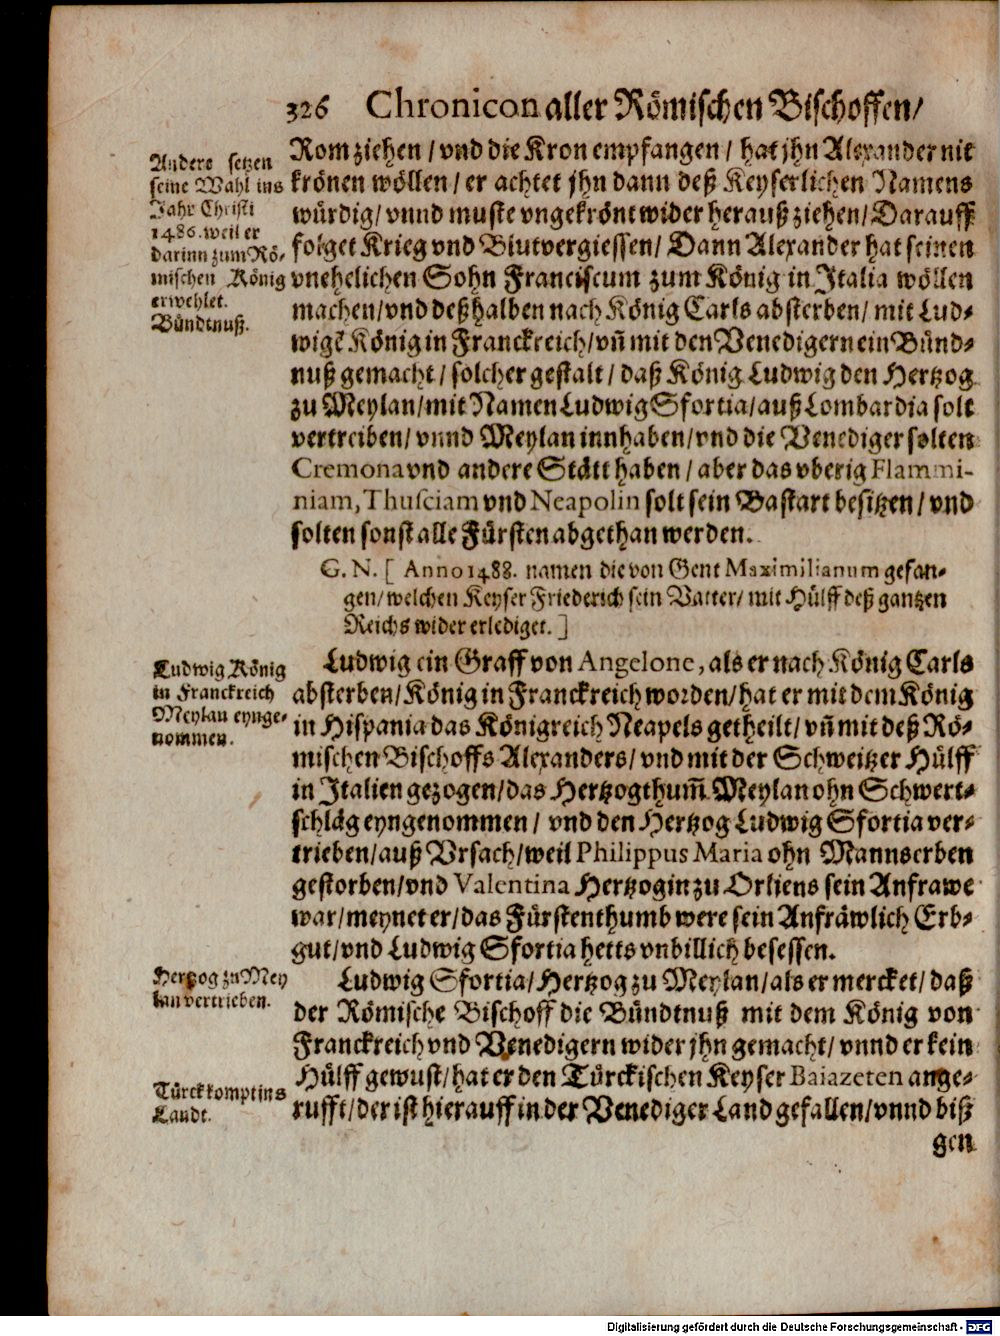 326 Chronicon aller Römischen Bischoffen/
Andere setzen
seine Wahl ins
Jahr Christi
1486. weil er
darinn zum Rö-
mischen König
erwehlet.
Bündtnuß.
Rom ziehen / vnd die Kron empfangen / hat jhn Alexander nit
krönen wöllen / er achtet jhn dann deß Keyserlichen Namens
würdig / vnnd muste vngekrönt wider herauß ziehen / Darauff
folget Krieg vnd Blutvergiessen / Dann Alexander hat seinen
vnehelichen Sohn Franciscum zum König in Italia wöllen
machen / vnd deßhalben nach König Carls absterben / mit Lud-
wigẽ König in Franckreich / vñ mit den Venedigern ein Bünd-
nuß gemacht / solcher gestalt / daß König Ludwig den Hertzog
zu Meylan / mit Namen Ludwig Sfortia / auß Lombardia solt
vertreiben / vnnd Meylan innhaben / vnd die Venediger solten
Cremona vnd andere Stätt haben / aber das vberig Flammi-
niam, Thusciam vnd Neapolin solt sein Bastart besitzen / vnd
solten sonst alle Fürsten abgethan werden.
G. N. [ Anno 1488. namen die von Gent Maximilianum gefan-
gen / welchen Keyser Friederich sein Vatter / mit Hülff deß gantzen
Reichs wider erlediget. ]
Ludwig König
in Franckreich
Meylan eynge-
nommen.
Ludwig ein Graff von Angelone, als er nach König Carls
absterben / König in Franckreich worden / hat er mit dem König
in Hispania das Königreich Neapels getheilt / vñ mit deß Rö-
mischen Bischoffs Alexanders / vnd mit der Schweitzer Hülff
in Italien gezogen / das Hertzogthum̃ Meylan ohn Schwert-
schläg eyngenommen / vnd den Hertzog Ludwig Sfortia ver-
trieben / auß Vrsach / weil Philippus Maria ohn Mannserben
gestorben / vnd Valentina Hertzogin zu Orliens sein Anfrawe
war / meynet er / das Fürstenthumb were sein Anfräwlich Erb-
gut / vnd Ludwig Sfortia hetts vnbillich besessen.
Hertzog zu Mey
lan vertrieben.
Türck kompt ins
Landt.
Ludwig Sfortia / Hertzog zu Meylan / als er mercket / daß
der Römische Bischoff die Bündtnuß mit dem König von
Franckreich vnd Venedigern wider jhn gemacht / vnnd er kein
Hülff gewust / hat er den Türckischen Keyser Baiazeten ange-
rufft / der ist hierauff in der Venediger Land gefallen / vnnd biß
gen
Digitalisierung gefördert durch die Deutsche Forschungsgemeinschaft - DFG